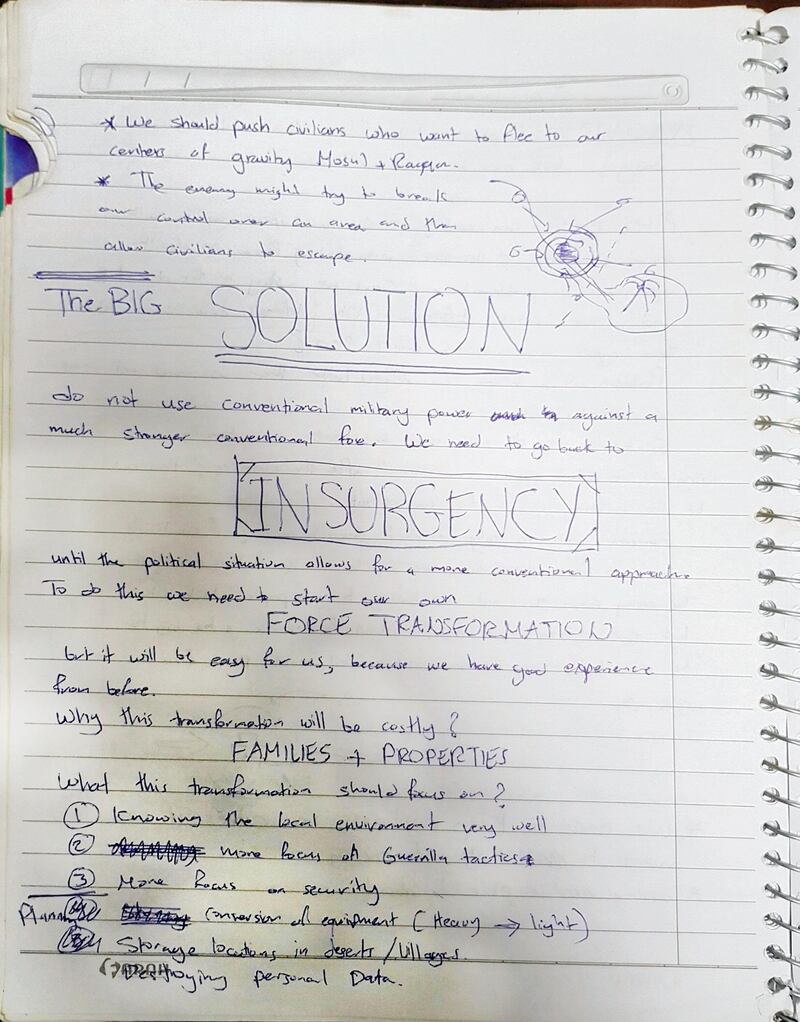 * We should push civilians who want to flee to our
centers of gravity Mosul + Raqqa.
* The enemy might try to break
our control over an area and then
allow civilians to escape.
The BIG SOLUTION
do not use conventional military power against a
much stronger conventional foe. We need to go back to
INSURGENCY
until the political situation allows for a more conventional approach.
To do this we need to start our own
FORCE TRANSFORMATION
but it will be easy for us, because we have good experience
from before.
Why this transformation will be costly?
FAMILIES + PROPERTIES
What this transformation should focus on?
① Knowing the local environment very well
② more focus of Guerilla tactics
③ More focus on security
conversion of equipment (Heavy → light)
Storage locations in deserts / Villages.
Destroying personal Data.